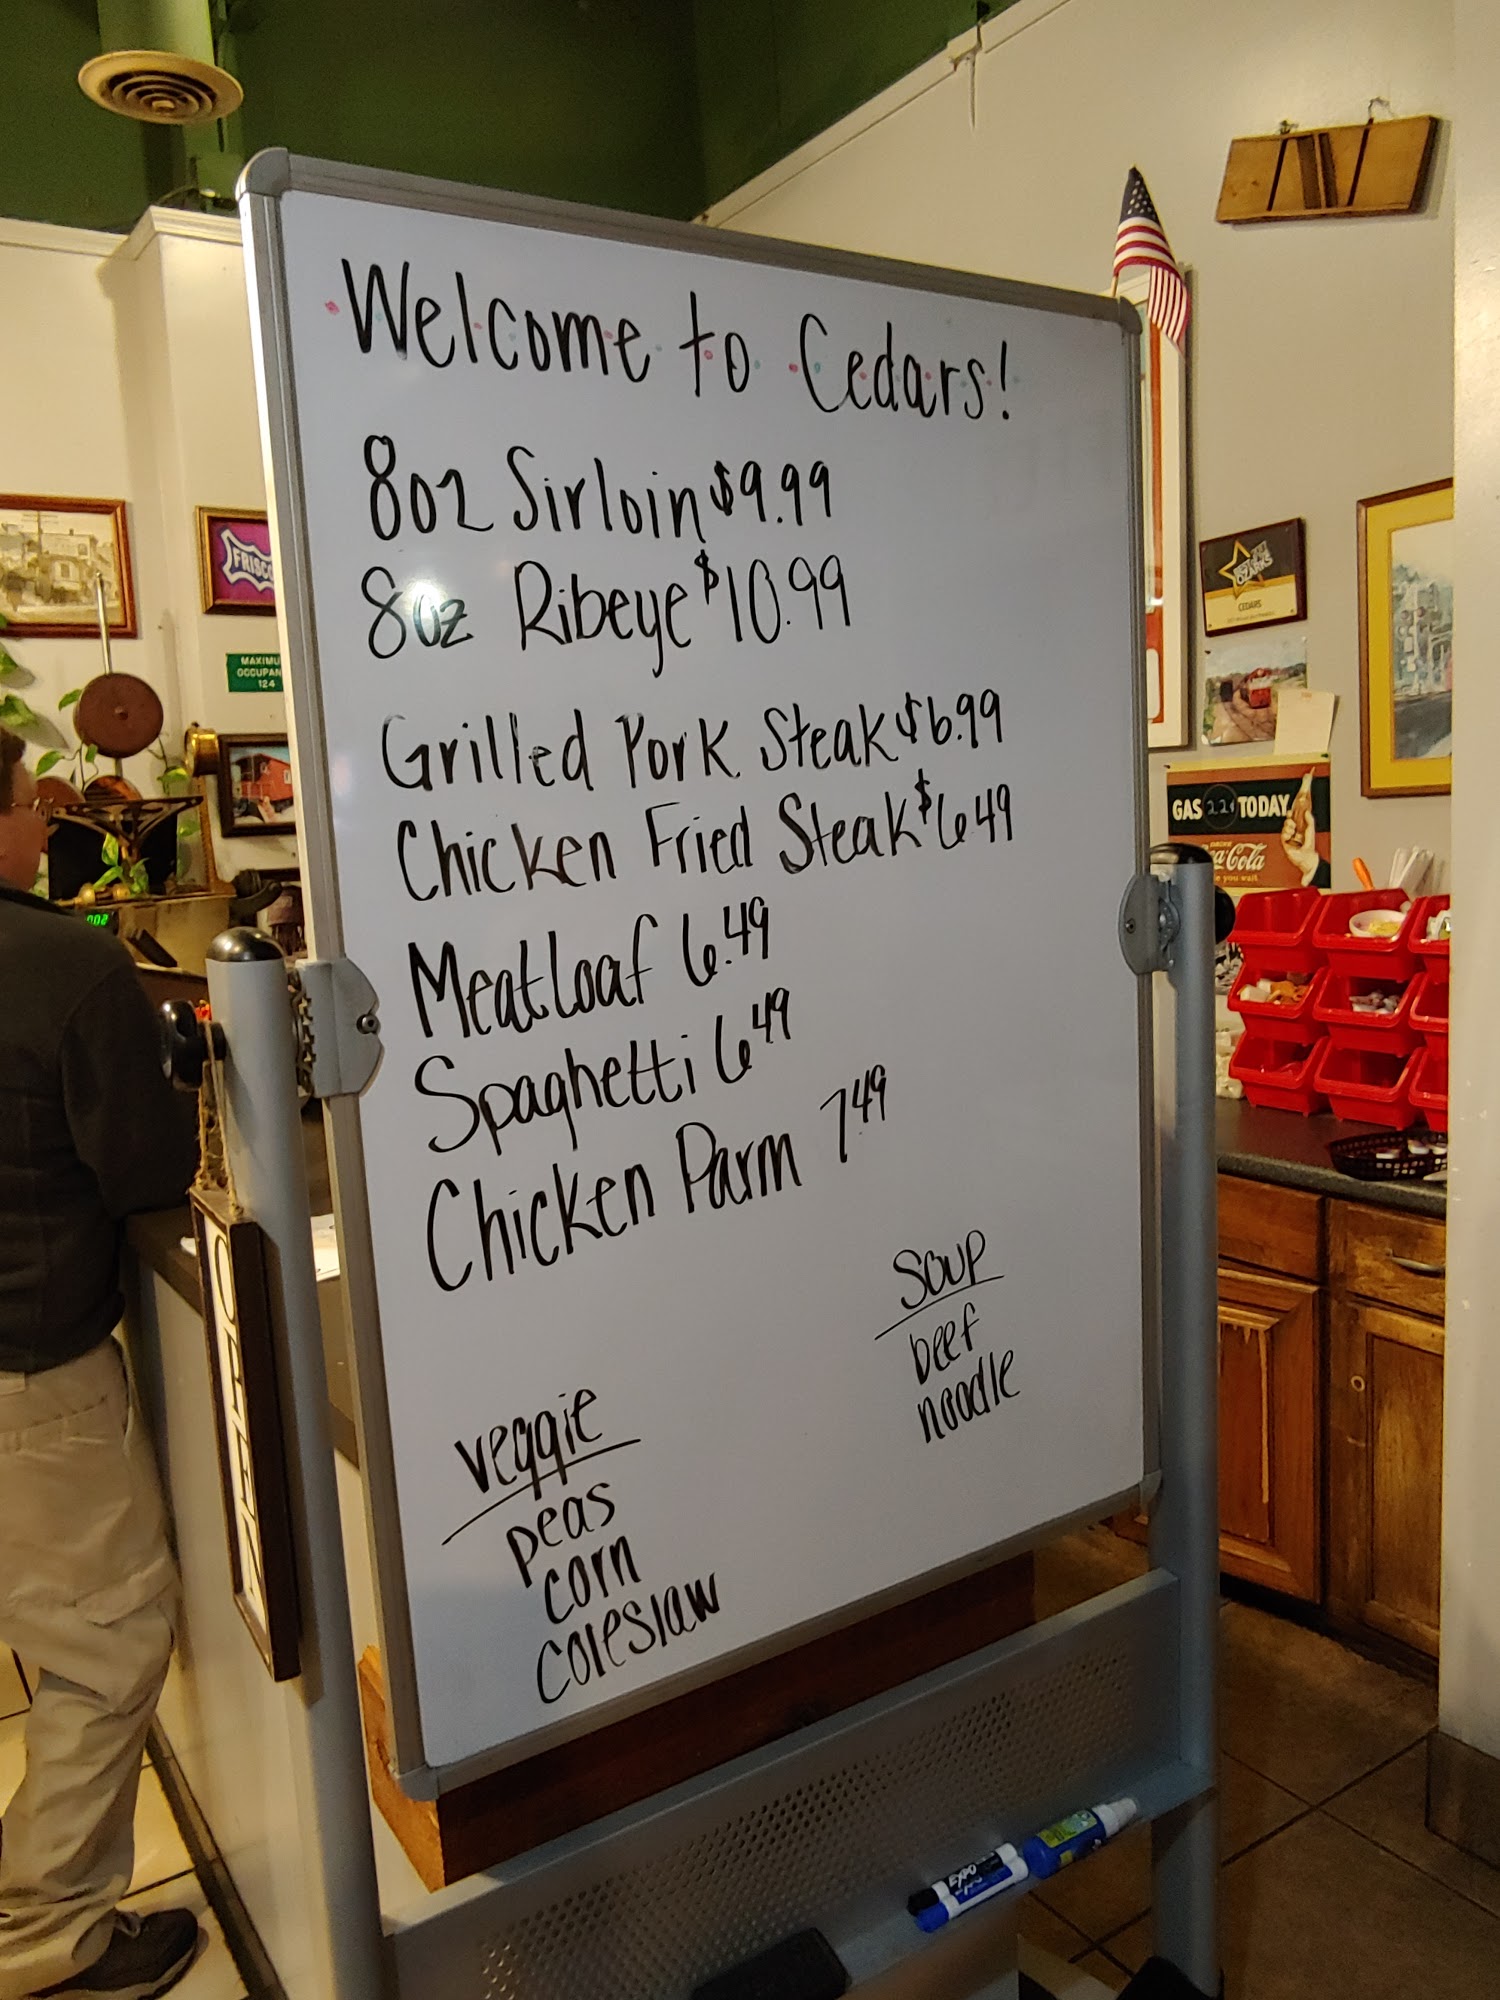 Welcome to Cedars!
8oz Sirloin $9.99
8oz Ribeye $10.99
Grilled Pork Steak $6.99
Chicken Fried Steak $6.49
Meatloaf 6.49
Spaghetti 6.49
Chicken Parm 7.49
SOUP
beef
noodle
veggie
peas
corn
coleslaw
FRISCO
MAXIMU
OCCUPAN
124
OZARKS
CEDARS
GAS TODAY
DRINK
Coca-Cola
EXPO